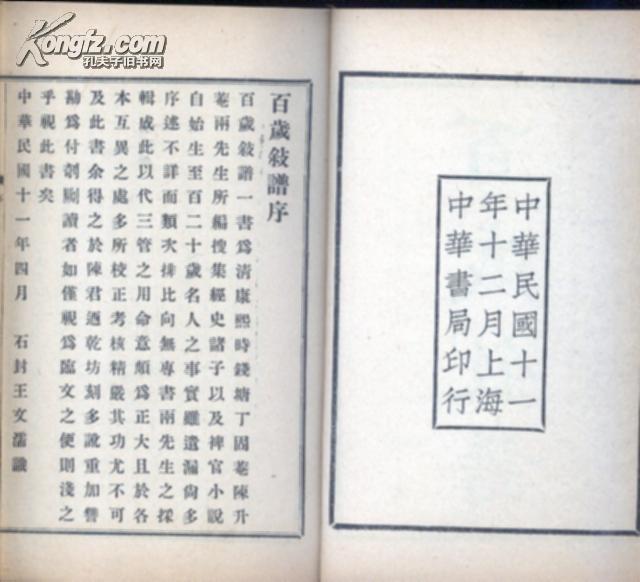 Kongfz.com
孔夫子旧书网
中華民國十一
年十二月上海
中華書局印行
百歲敍譜序
百歲敍譜一書爲清康熙時錢塘丁固菴陳升
菴兩先生所編搜集經史諸子以及裨官小說
自始生至百二十歲名人之事實雖遺漏尙多
序述不詳而類次排比向無專書兩先生之採
輯成此以代三管之用命意頗爲正大且於各
本互異之處多所校正考核精嚴其功尤不可
及此書余得之於陳君迺乾坊刻多訛重加讐
勘爲付剞劂讀者如僅視爲臨文之便則淺之
乎視此書矣
中華民國十一年四月 石封王文濡識